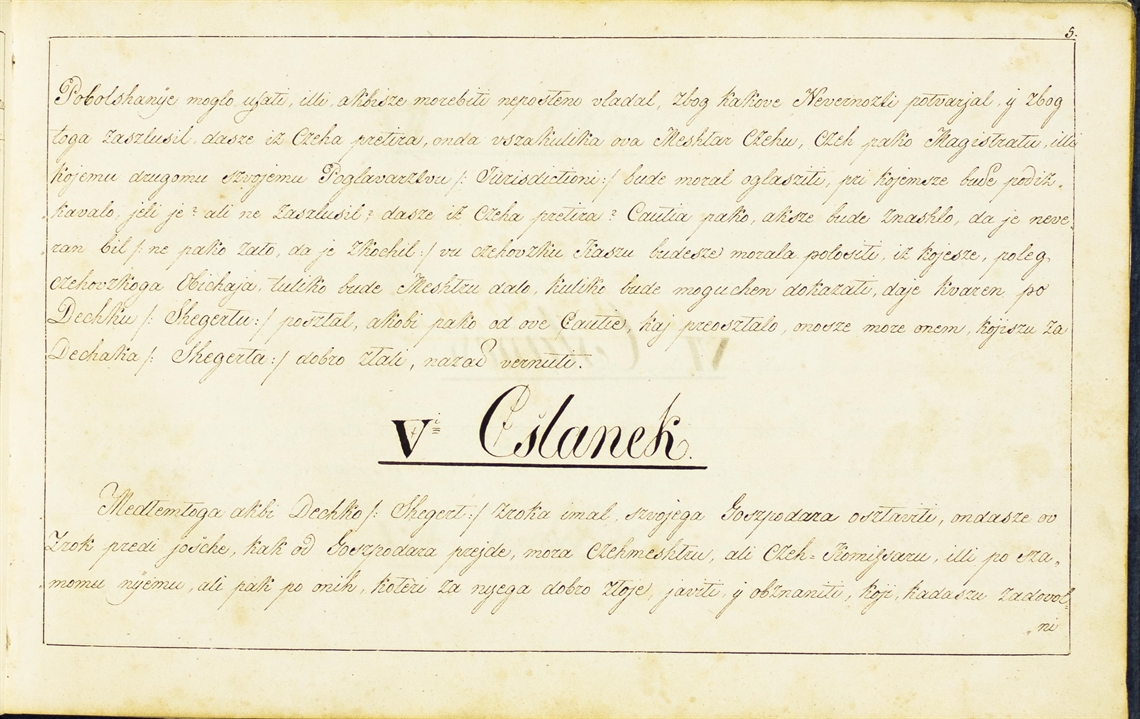 5.
Pobolshanÿe moglo ufati, illi, akbisze morebiti neposteno vladal, zbog kakove Nevernozti potvarjal, ÿ zbog
toga zaszlusil, dasze iz Czeha pretira, onda vszakulika ova Meshtar Czehu, Czeh pako Magistratu, illi
kojemu drugomu szvojemu Poglavarztvu /: Jurisdictioni :/ bude moral oglasziti, pri kojemsze bude podiz„
kavalo, jeli je? ali ne zaszlusil? dasze iz Czeha pretira? Cautia pako, aksze bude znashlo, da je neve„
ran bil /: ne pako zato, da je zkochil :/ vu czehovzku Kaszu budesze morala polositi, iz kojesze, poleg
czehovzkoga Obichaja, tuliko bude Meshtru dalo, kuliko bude moguchen dokazati, daje kvaren po
Dechku /: Shegertu :/ posztal, akobi pako od ove Cautie, kaj preosztalo, onosze more onem, kojiszu za
Dechaka /: Shegerta :/ dobro ztali, nazad vernuti.
V<sup>i</sup> Cslanek.
Medtemtoga akbi Dechko /: Shegert :/ zroka imal, szvojega Goszpodara osztaviti, ondasze ov
Zrok predi joshche, kak od Goszpodara prejde, mora Czehmeshtru, ali Czeh=Komifsaru, illi po sza„
momu nÿemu, ali pak po onih, koteri za nÿega dobro ztoje, javiti, ÿ obznaniti, koji, kadaszu zadovol„
„ni